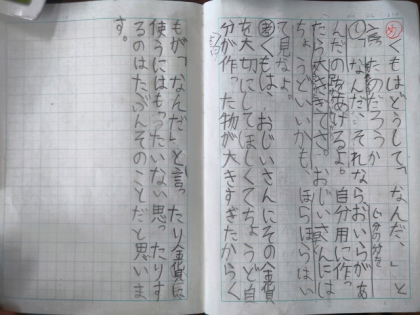 めくもは、どうして「なんだ、」と
言ったのだろうか
①「なんだ、それならおいらがあ
心の分を
んだのをあげるよ。自分用に作っ
たら大きすぎてさ。おじいさんには
ちょうどいいかも、ほらはらはい
て見なよ。
おくもは、おじいさんにその金貨
を大切にしてほしくてちょうど自
分が作った物が大きすぎたからく
もが「なんだ」と言ったり金貨は
使うにはもったいない思ったりす
るのはたぶんそのことだと思いま
す。